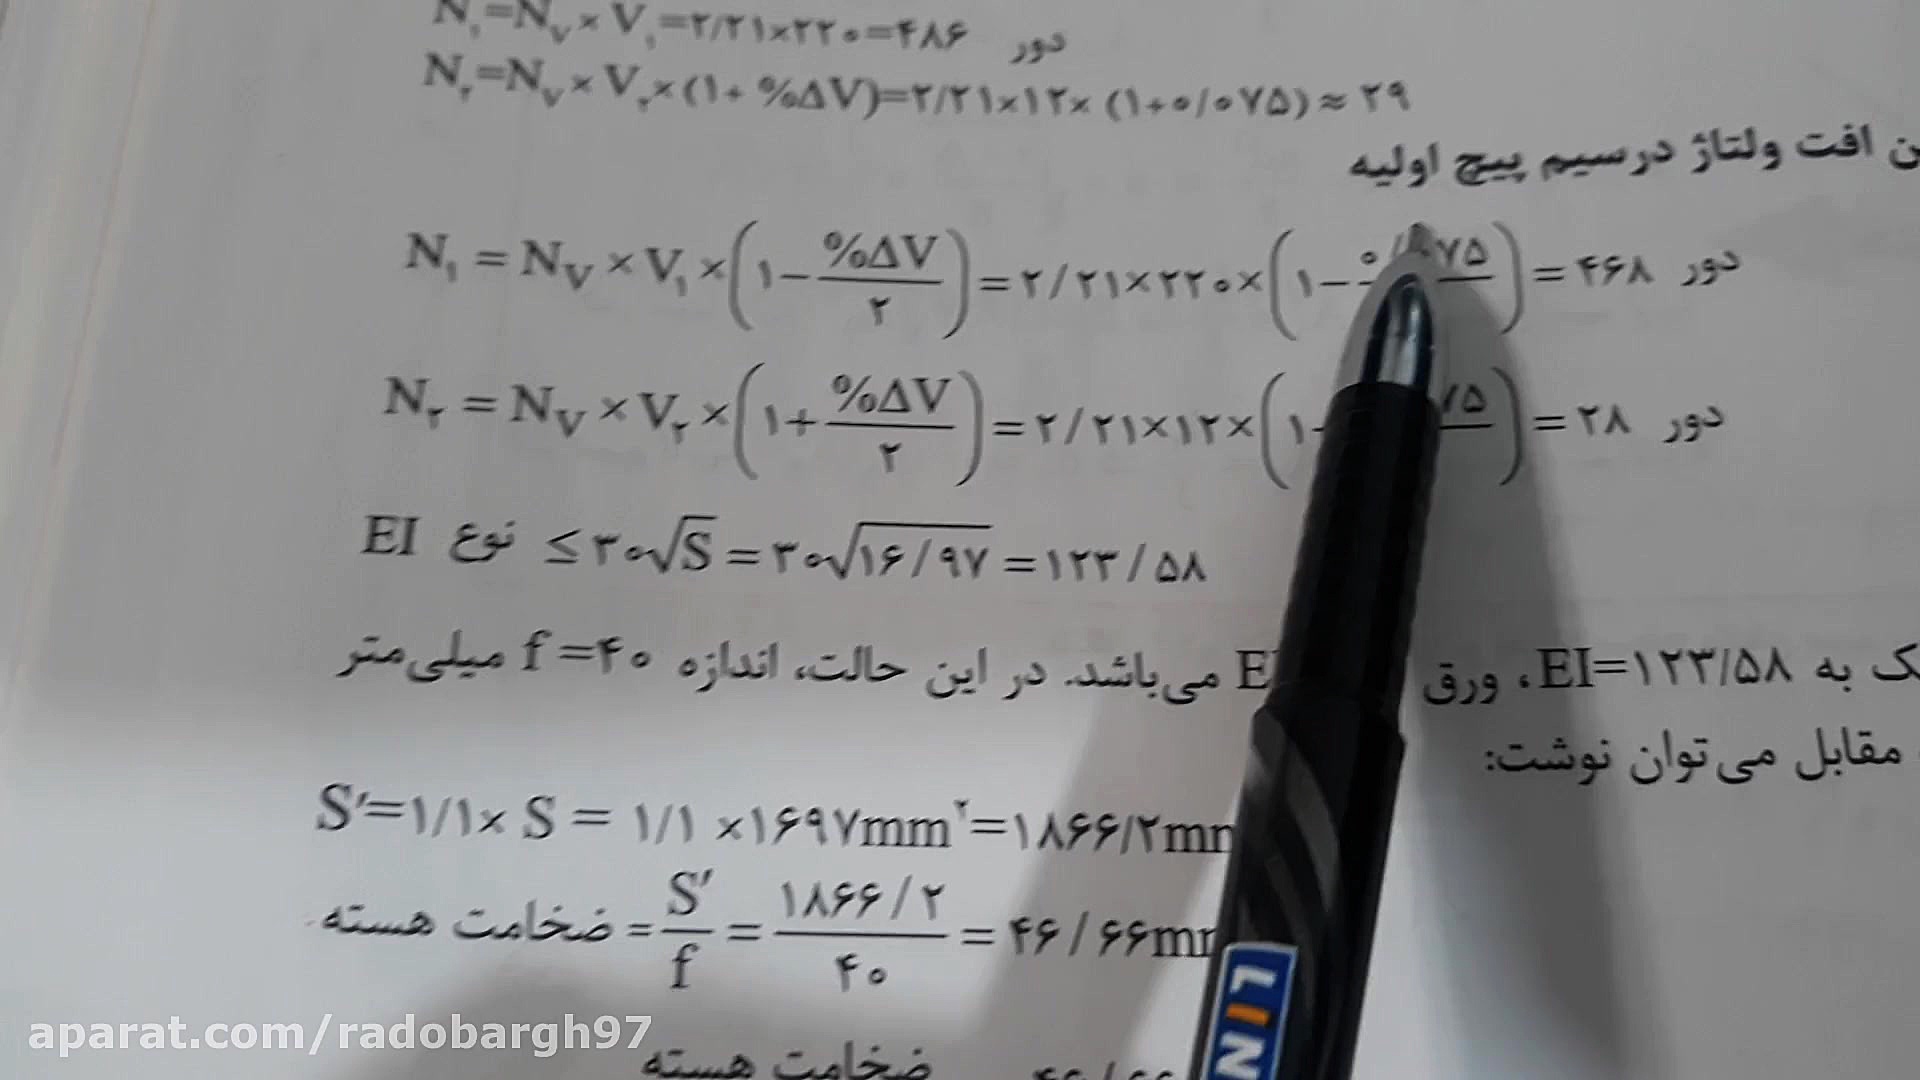 N۱=NV×V۱=۲/۲۱×۲۲۰=۴۸۶ دور
N۲=NV×V۲×(۱+%ΔV)=۲/۲۱×۱۲×(۱+۰/۰۷۵)≈۲۹
افت ولتاژ در سیم پیچ اولیه
N۱ = NV × V۱ × (۱ − %ΔV/۲) = ۲/۲۱×۲۲۰×(۱− ۷۵) = ۴۶۸ دور
N۲ = NV × V۲ × (۱ + %ΔV/۲) = ۲/۲۱×۱۲×(۱ ۷۵) = ۲۸ دور
EI نوع ≤ ۳۰√S = ۳۰√۱۶/۹۷ = ۱۲۳/۵۸
به EI=۱۲۳/۵۸، ورق می‌باشد. در این حالت، اندازه f =۴۰ میلی‌متر
مقابل می‌توان نوشت:
S′=۱/۱× S = ۱/۱ ×۱۶۹۷mm۲=۱۸۶۶/۲
ضخامت هسته = S′/f = ۱۸۶۶/۲ / ۴۰ = ۴۶/۶۶
LIN
ضخامت هسته
aparat.com/radobargh97